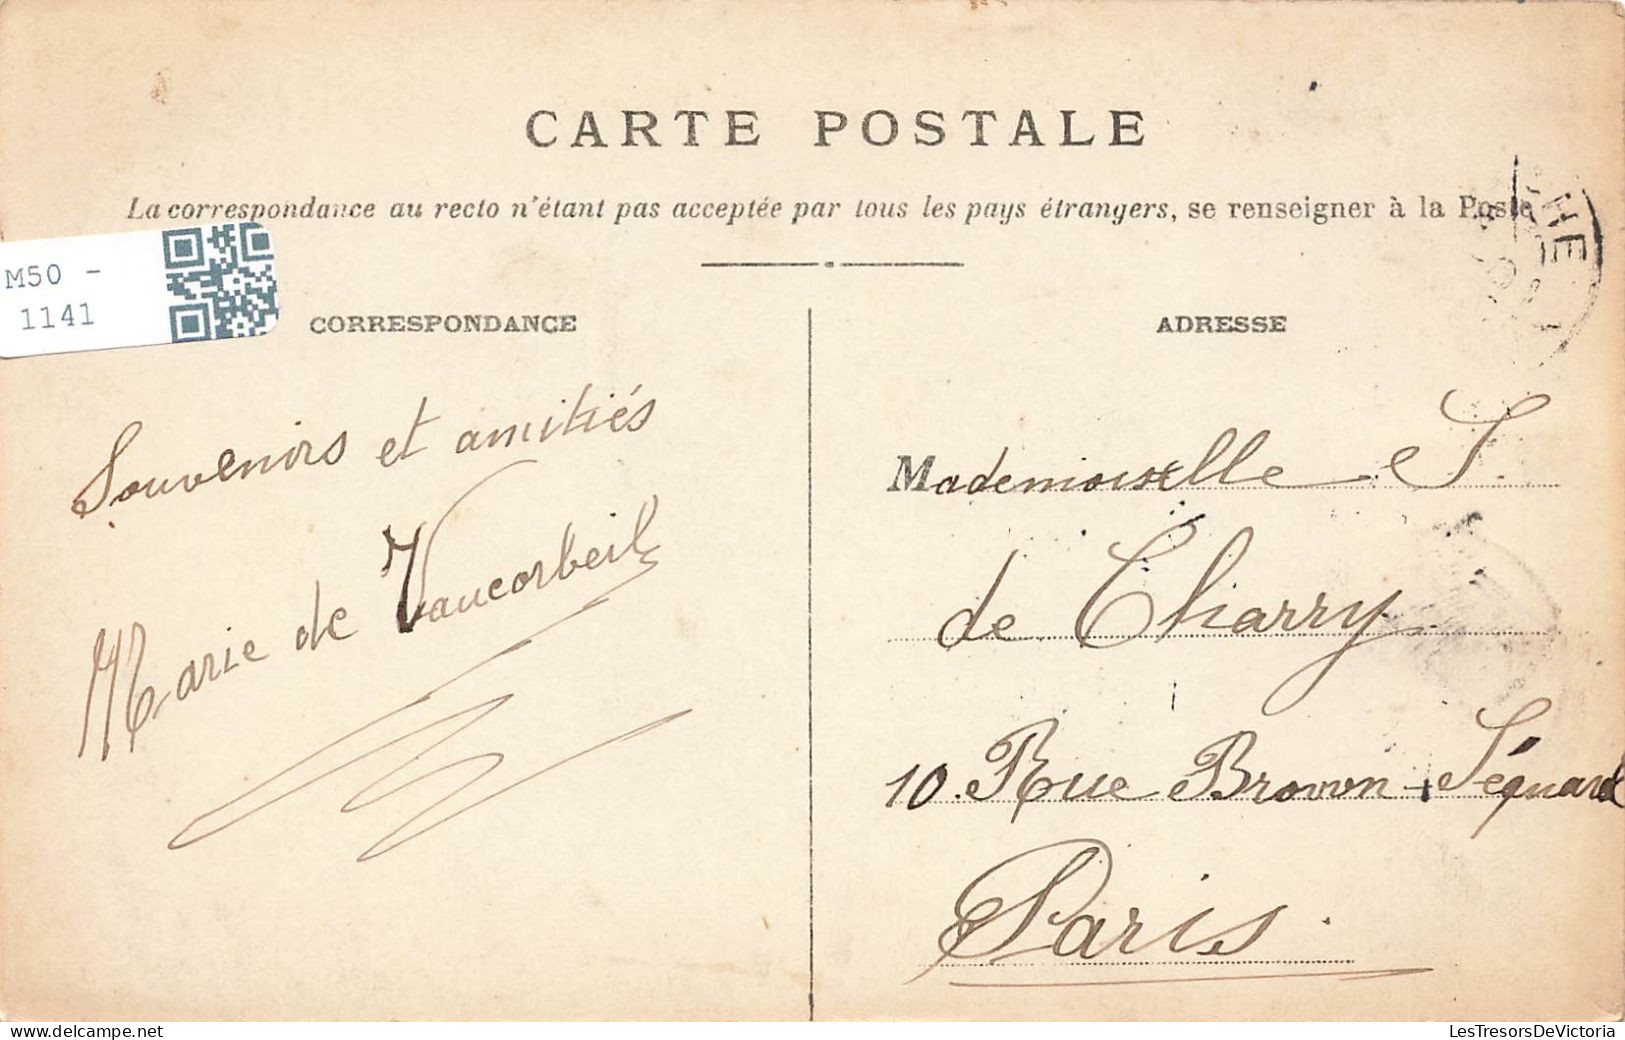 CARTE POSTALE
La correspondance au recto n'étant pas acceptée par tous les pays étrangers, se renseigner à la Poste
M50 -
1141
CORRESPONDANCE
Souvenirs et amitiés
Marie de Vaucorbeil
ADRESSE
Mademoiselle S.
de Charry
10. Rue Brown-Séquard
Paris.
delcampe.net
LesTresorsDeVictoria